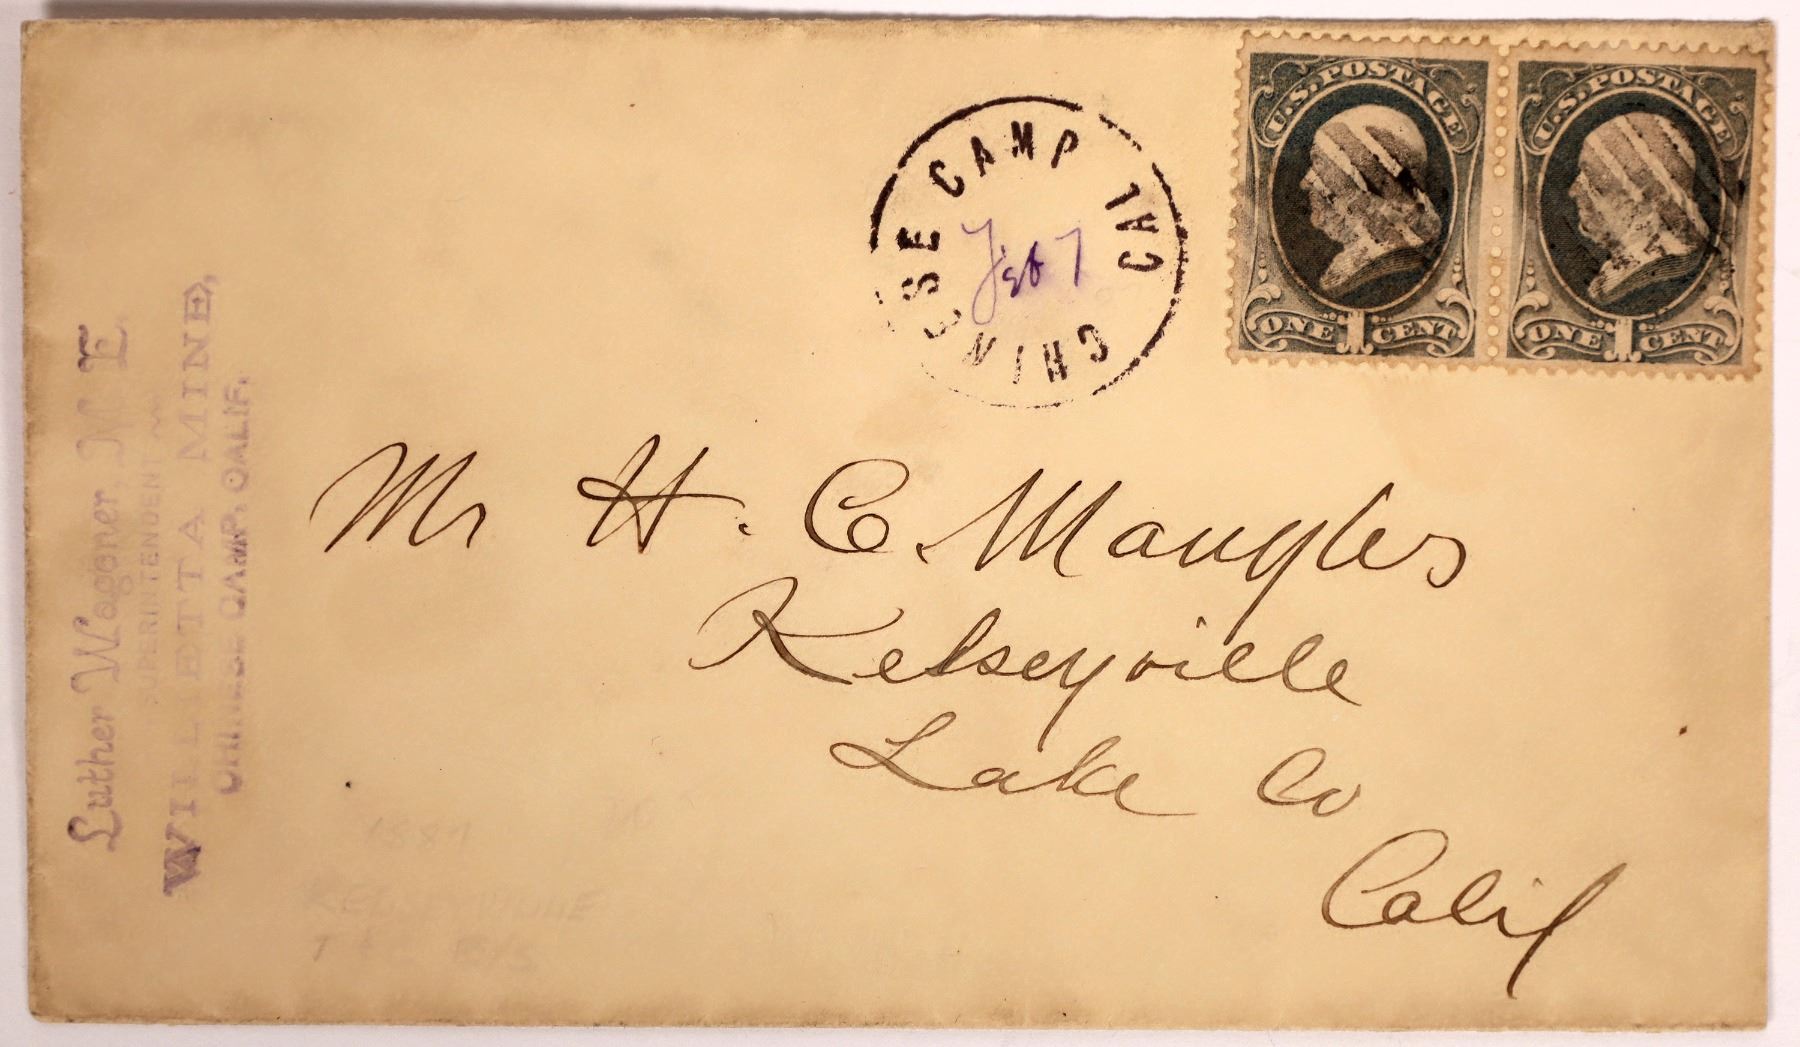 Luther Wagoner, M. E.
SUPERINTENDENT
WILLIETTA MINE,
CHINESE CAMP, CALIF.
CHINESE CAMP CAL
Feb 7
U.S. POSTAGE
ONE 1 CENT
U.S. POSTAGE
ONE 1 CENT
Mr H. C. Mangles
Kelseyville
Lake Co
Calif
1887
KELSEYVILLE
B/S